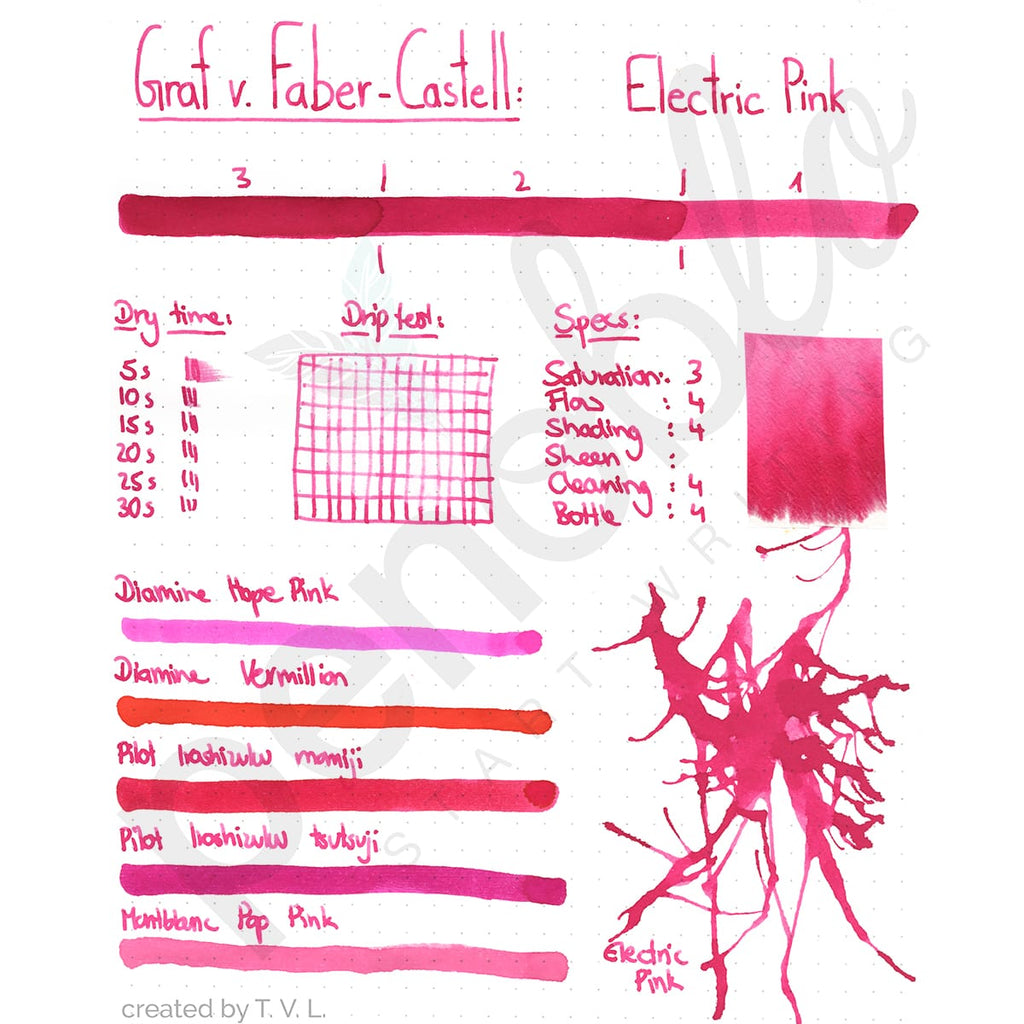 Graf v. Faber-Castell: Electric Pink
3 | 2 | 1
| |
Dry time:
5s
10s
15s
20s
25s
30s
Drip test:
Specs:
Saturation: 3
Flow : 4
Shading : 4
Sheen :
Cleaning : 4
Bottle : 4
Diamine Hope Pink
Diamine Vermillion
Pilot Iroshizuku momiji
Pilot Iroshizuku tsutsuji
Montblanc Pop Pink
Electric
Pink
penoblo
START WRITING
created by T. V. L.